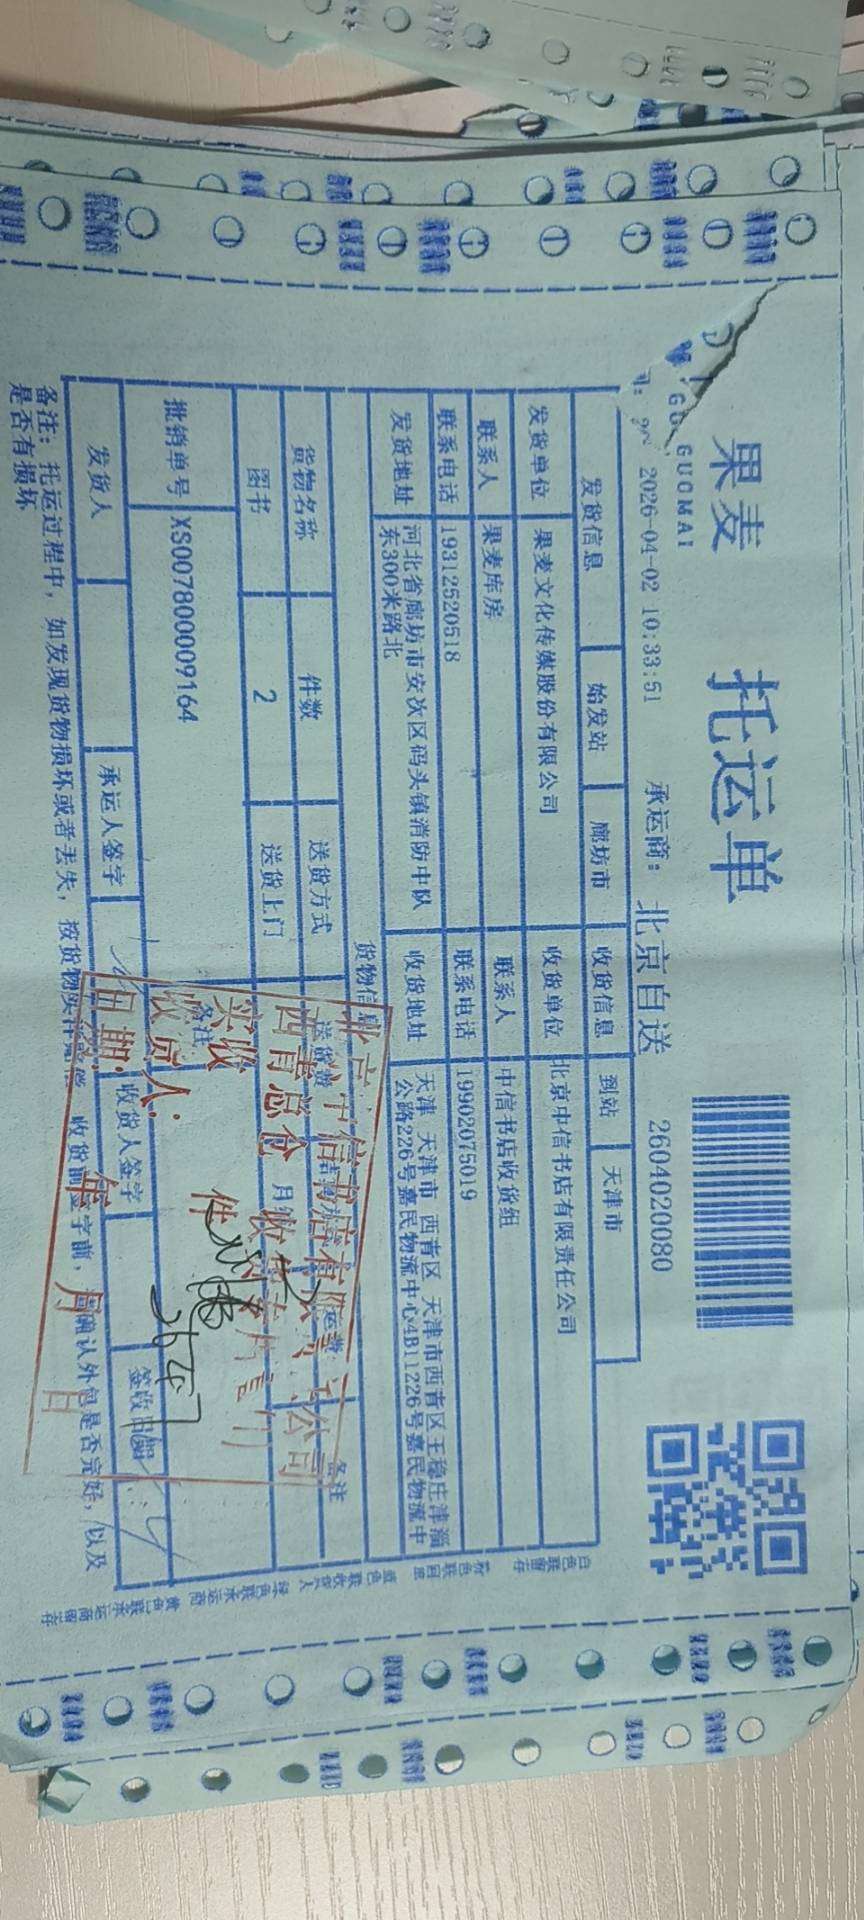 果麦 托运单
GUOMAI
2026-04-02 10:33:51 承运商: 北京自送 2604020080
发货信息 始发站 廊坊市 收货信息 到站 天津市
发货单位 果麦文化传媒股份有限公司 收货单位 北京中信书店有限责任公司
联系人 果麦库房 联系人 中信书店收货组
联系电话 19312520518 联系电话 19902075019
发货地址 河北省廊坊市安次区码头镇消防中队东300米路北 收货地址 天津 天津市 西青区 天津市西青区王稳庄津淄公路226号嘉民物流中心4B11226号嘉民物流中
货物信息
货物名称 件数 送货方式 送货费 运费 备注
图书 2 送货上门 月结
批销单号 XS007800009164 备注
发货人 承运人签字 收货人签字 签收日期
备注: 托运过程中, 如发现货物损坏或者丢失, 按货物实 收货 签字前, 确认外包是否完好, 以及
是否有损坏
中信书店有限 公司
西青总仓 收货专
实收 件
收货人:
日期: 年 月 日
白色联留存
粉色联回单
蓝色联收货人
绿色联承运商
黄色联承运商留存